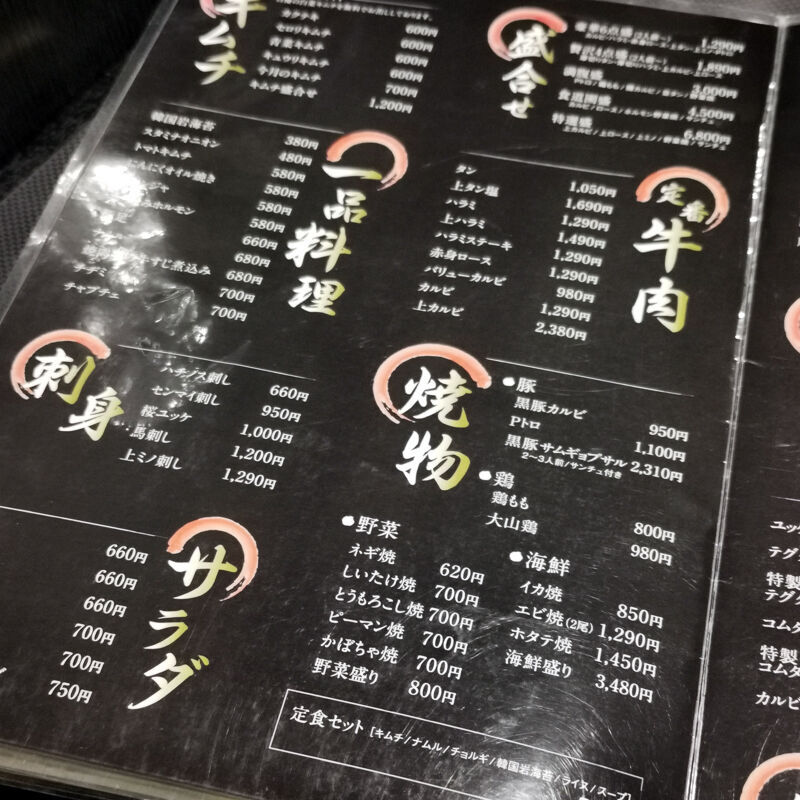 キムチ
カクテキ 600円
セロリキムチ 600円
青菜キムチ 600円
キュウリキムチ 600円
今月のキムチ 700円
キムチ盛合せ 1,200円
盛合せ
1,290円
贅沢4点盛(2人前〜) 1,890円
満腹盛 3,000円
食道園盛 4,500円
特選盛 6,800円
一品料理
韓国岩海苔 380円
スタミナオニオン 480円
トマトキムチ 580円
にんにくオイル焼き 580円
580円
ホルモン 580円
660円
すじ煮込み 680円
680円
チヂミ 700円
チャプチェ 700円
定番牛肉
タン 1,050円
上タン塩 1,690円
ハラミ 1,290円
上ハラミ 1,490円
ハラミステーキ 1,290円
赤身ロース 1,290円
バリューカルビ 980円
カルビ 1,290円
上カルビ 2,380円
刺身
ハチノス刺し 660円
センマイ刺し 950円
桜ユッケ 1,000円
馬刺し 1,200円
上ミノ刺し 1,290円
焼物
●豚
黒豚カルビ 950円
Pトロ 1,100円
黒豚サムギョプサル 2,310円
2〜3人前/サンチュ付き
●鶏
鶏もも 800円
大山鶏 980円
●野菜
ネギ焼 620円
しいたけ焼 700円
とうもろこし焼 700円
ピーマン焼 700円
かぼちゃ焼 700円
野菜盛り 800円
●海鮮
イカ焼 850円
エビ焼(2尾) 1,290円
ホタテ焼 1,450円
海鮮盛り 3,480円
サラダ
660円
660円
660円
700円
700円
750円
定食セット [キムチ/ナムル/チョルギ/韓国岩海苔/ライス/スープ]
ユッ
テグ
特製
テグ
コムタ
特製
コムタ
カルビ